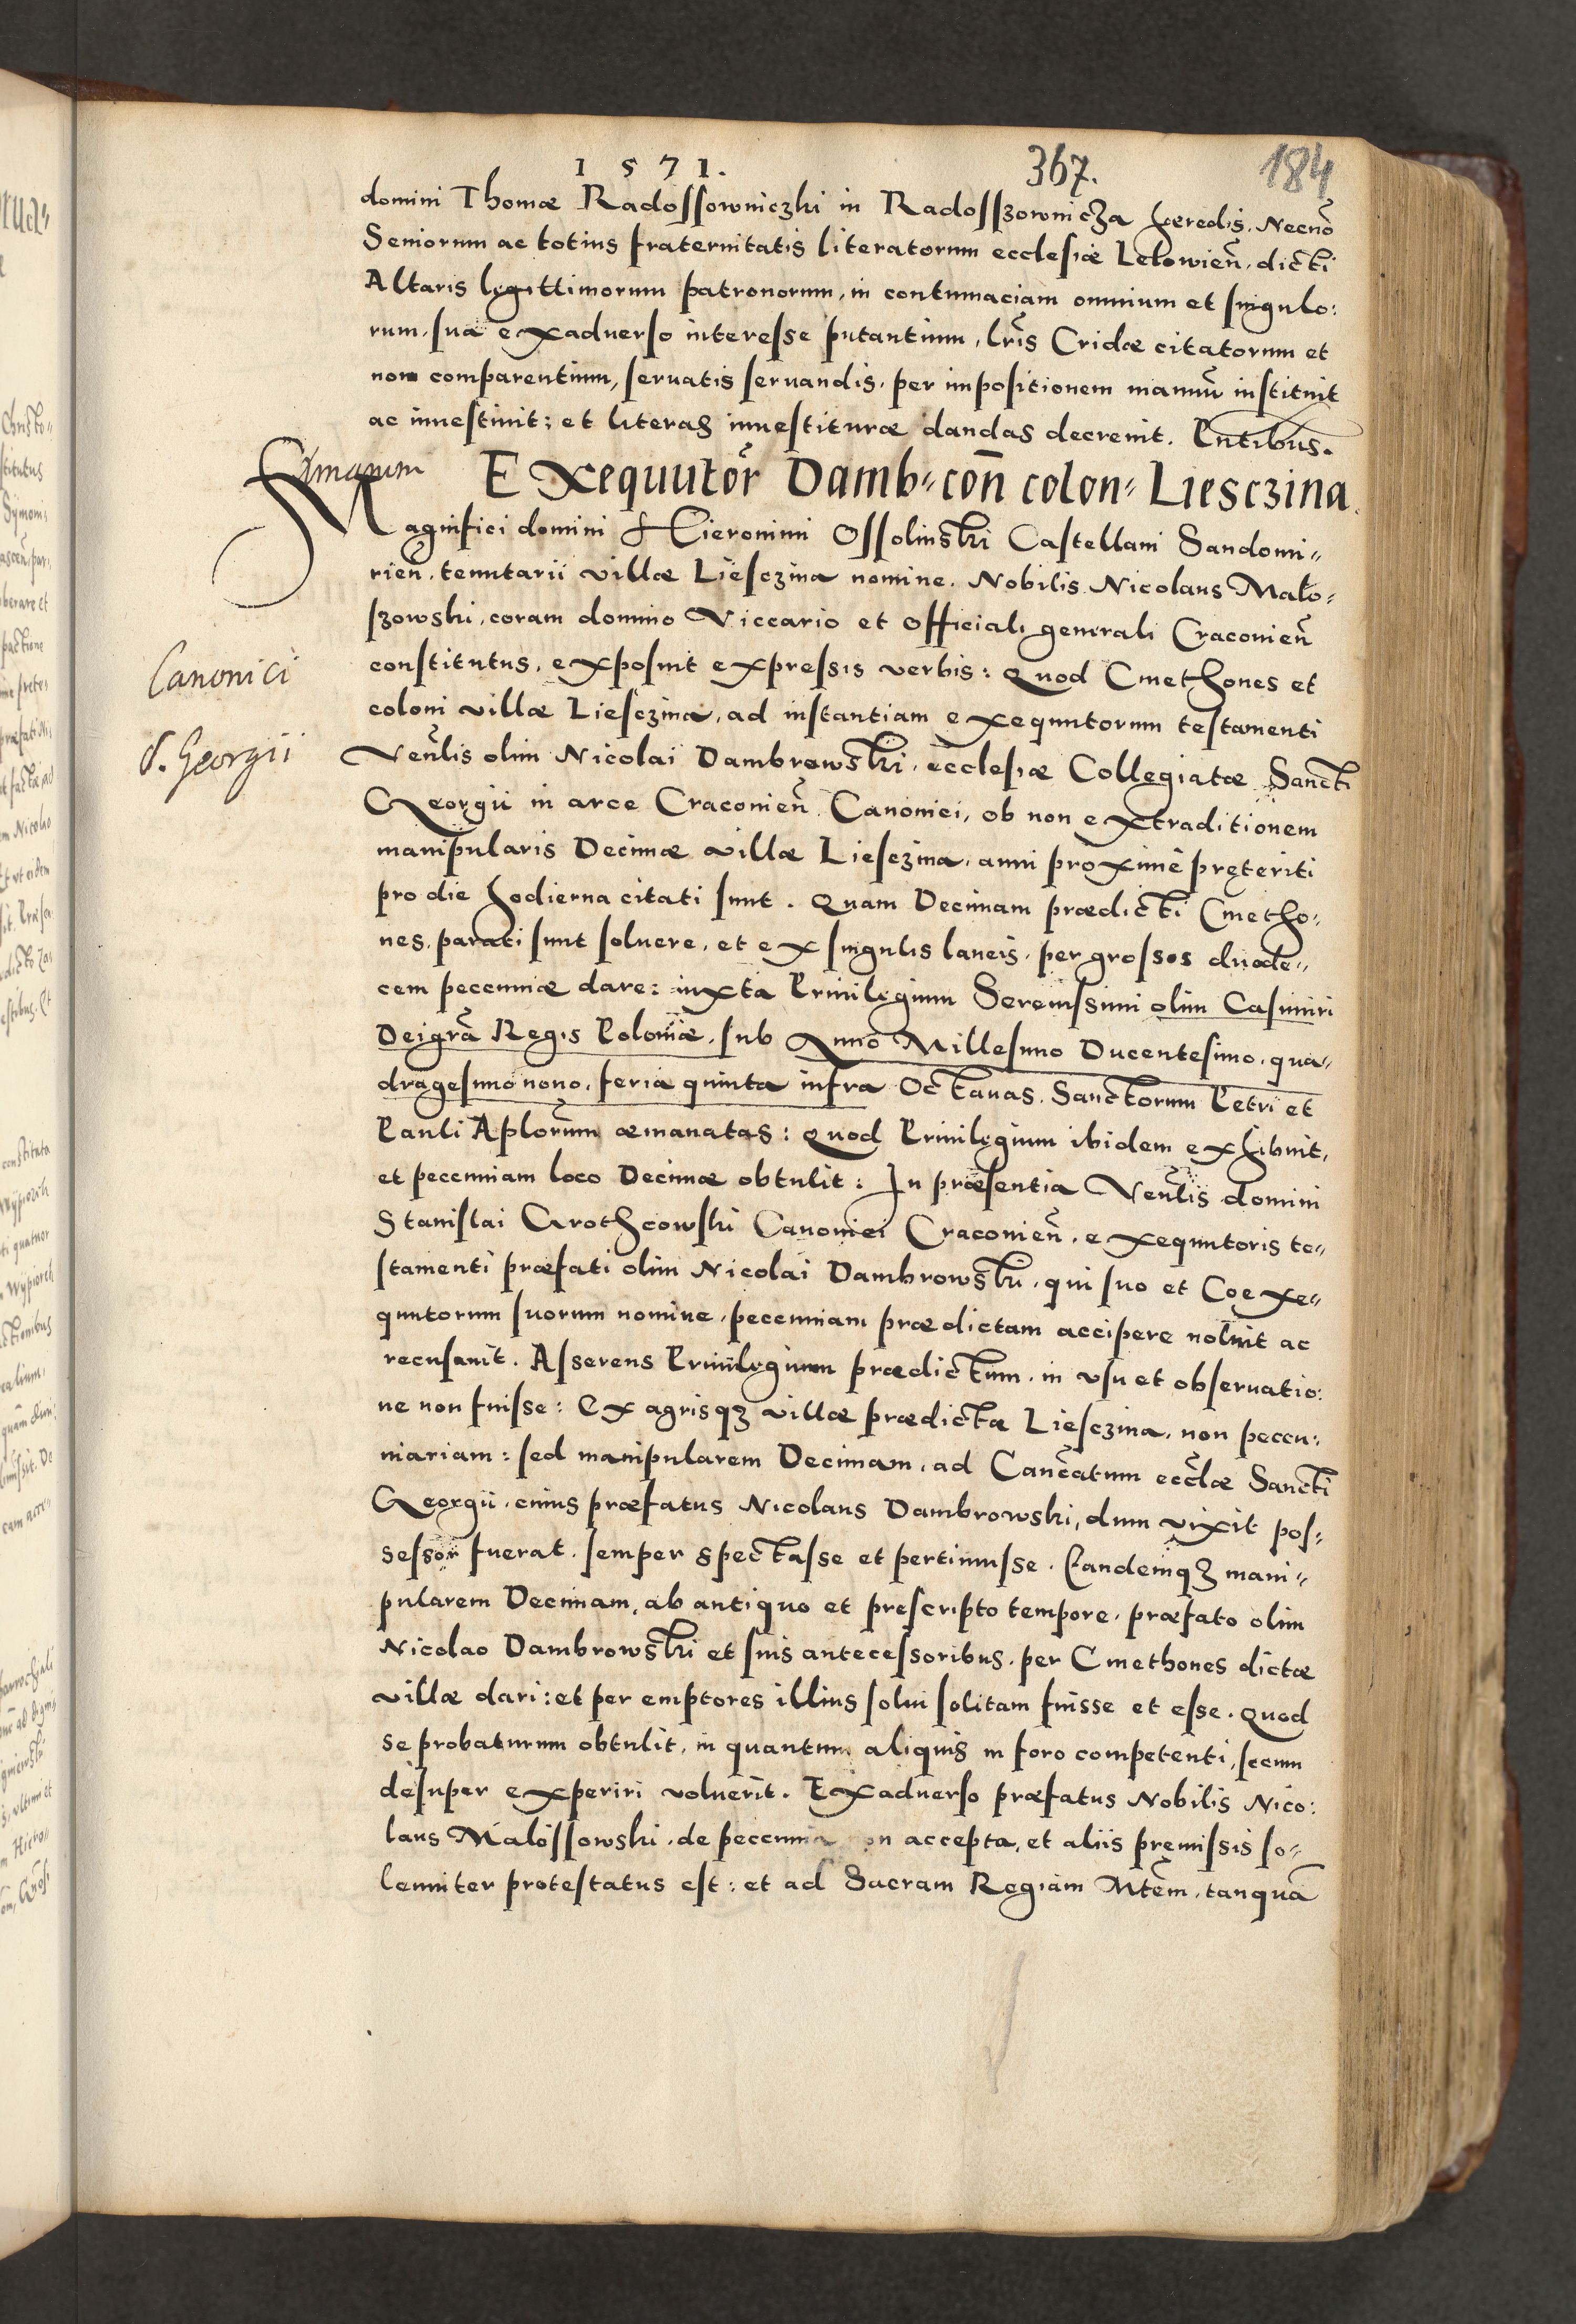 1571.
367.
184
domini Thomæ Radossowniczki in Radosszownicza hæredis, Necnō
Seniorum ac totius fraternitatis literatorum ecclesiæ Lelowieñ, dicti
Altaris legittimorum patronorum, in contumaciam omnium et singulo:
rum, sua exaduerso interesse putantium, lris Cridæ citatorum et
non comparentium, seruatis seruandis, per impositionem manuū instituit
ac inuestiuit: et literas inuestituræ dandas decreuit. Pntibus.
Exequutor Damb= con colon= Liesczina
Magnifici domini Hieronimi Ossolinski Castellani Sandomi=
rieñ, tenutarii villæ Liesczina nomine. Nobilis Nicolaus Malo=
szowski, coram domino Viccario et Officiali generali Craconieñ
constitutus, exposuit expressis verbis: Quod Cmethones et
Canonici
coloni villæ Liesczina, ad instantiam exequutorum testamenti
S. Georgii
Venlis olim Nicolai Dambrowski, ecclesiæ Collegiatæ Sancti
Georgii in arce Craconieñ Canonici, ob non extraditionem
manipularis Decimæ villæ Liesczina, anni proximè pręteriti
pro die hodierna citati sunt. Quam Decimam prædicti Cmetho=
nes, parati sunt soluere, et ex singulis laneis, per grossos duode=
cem pecuniæ dare: iuxta Priuilegium Serenissimi olim Casimiri
Deigrā Regis Poloniæ, sub Anno Millesimo Ducentesimo, qua=
dragesimo nono, feria quinta infra Octauas Sanctorum Petri et
Pauli Aplorum æmanatas: Quod Priuilegium ibidem exhibuit,
et pecuniam loco Decimæ obtulit: In præsentia Venlis domini
Stanislai Crothcowski Canonici Craconieñ, exequutoris te=
stamenti præfati olim Nicolai Dambrowski, qui suo et Coexe=
quutorum suorum nomine, pecuniam prædictam accipere noluit ac
recusauit. Asserens Priuilegium prædictum, in vsu et obseruatio:
ne non fuisse: Ex agrisqz villæ prædictæ Liesczina, non pecu:
niariam: sed manipularem Decimam, ad Cancatum ecclæ Sancti
Georgii, cuius præfatus Nicolaus Dambrowski, dum vixit pos=
sessor fuerat, semper spectasse et pertinuisse. Eandemqz mani=
pularem Decimam, ab antiquo et prescripto tempore, præfato olim
Nicolao Dambrowski et suis antecessoribus, per Cmethones dictæ
villæ dari: et per emptores illius solui solitam fuisse et esse. Quod
se probaturum obtulit, in quantum aliquis in foro competenti, secum
desuper experiri voluerit. Exaduerso præfatus Nobilis Nico:
laus Malossowski, de pecunia non accepta, et aliis premissis so=
lenniter protestatus est: et ad Sacram Regiam Mtem, tanquā